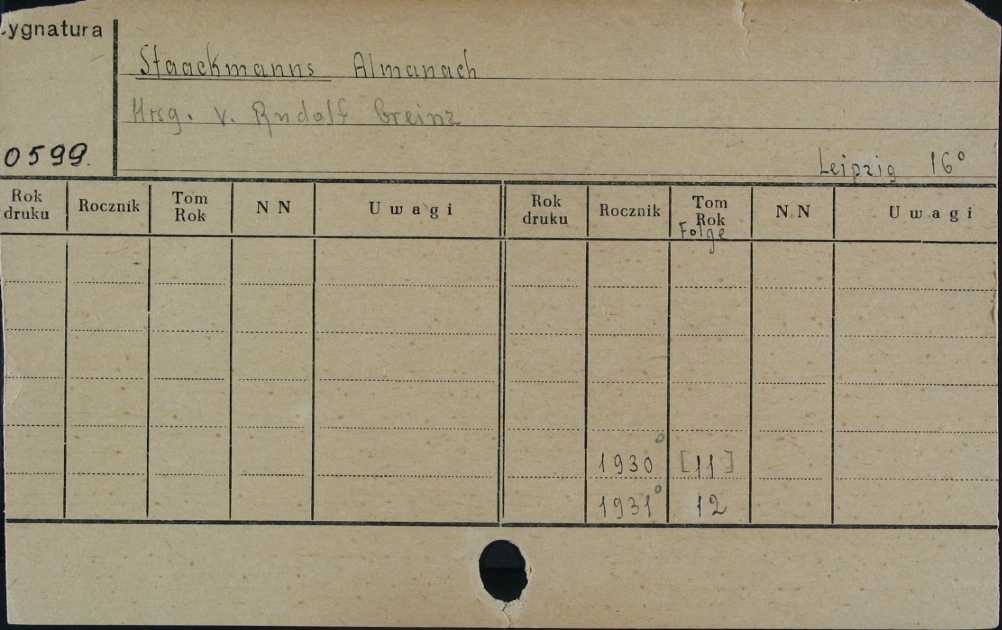 ygnatura
Staackmanns Almanach
Hrsg. v. Rudolf Greinz
0599.
Leipzig 16°
Rok druku Rocznik Tom Rok N N Uwagi Rok druku Rocznik Tom Rok Folge N N Uwagi
1930° [11]
1931° 12